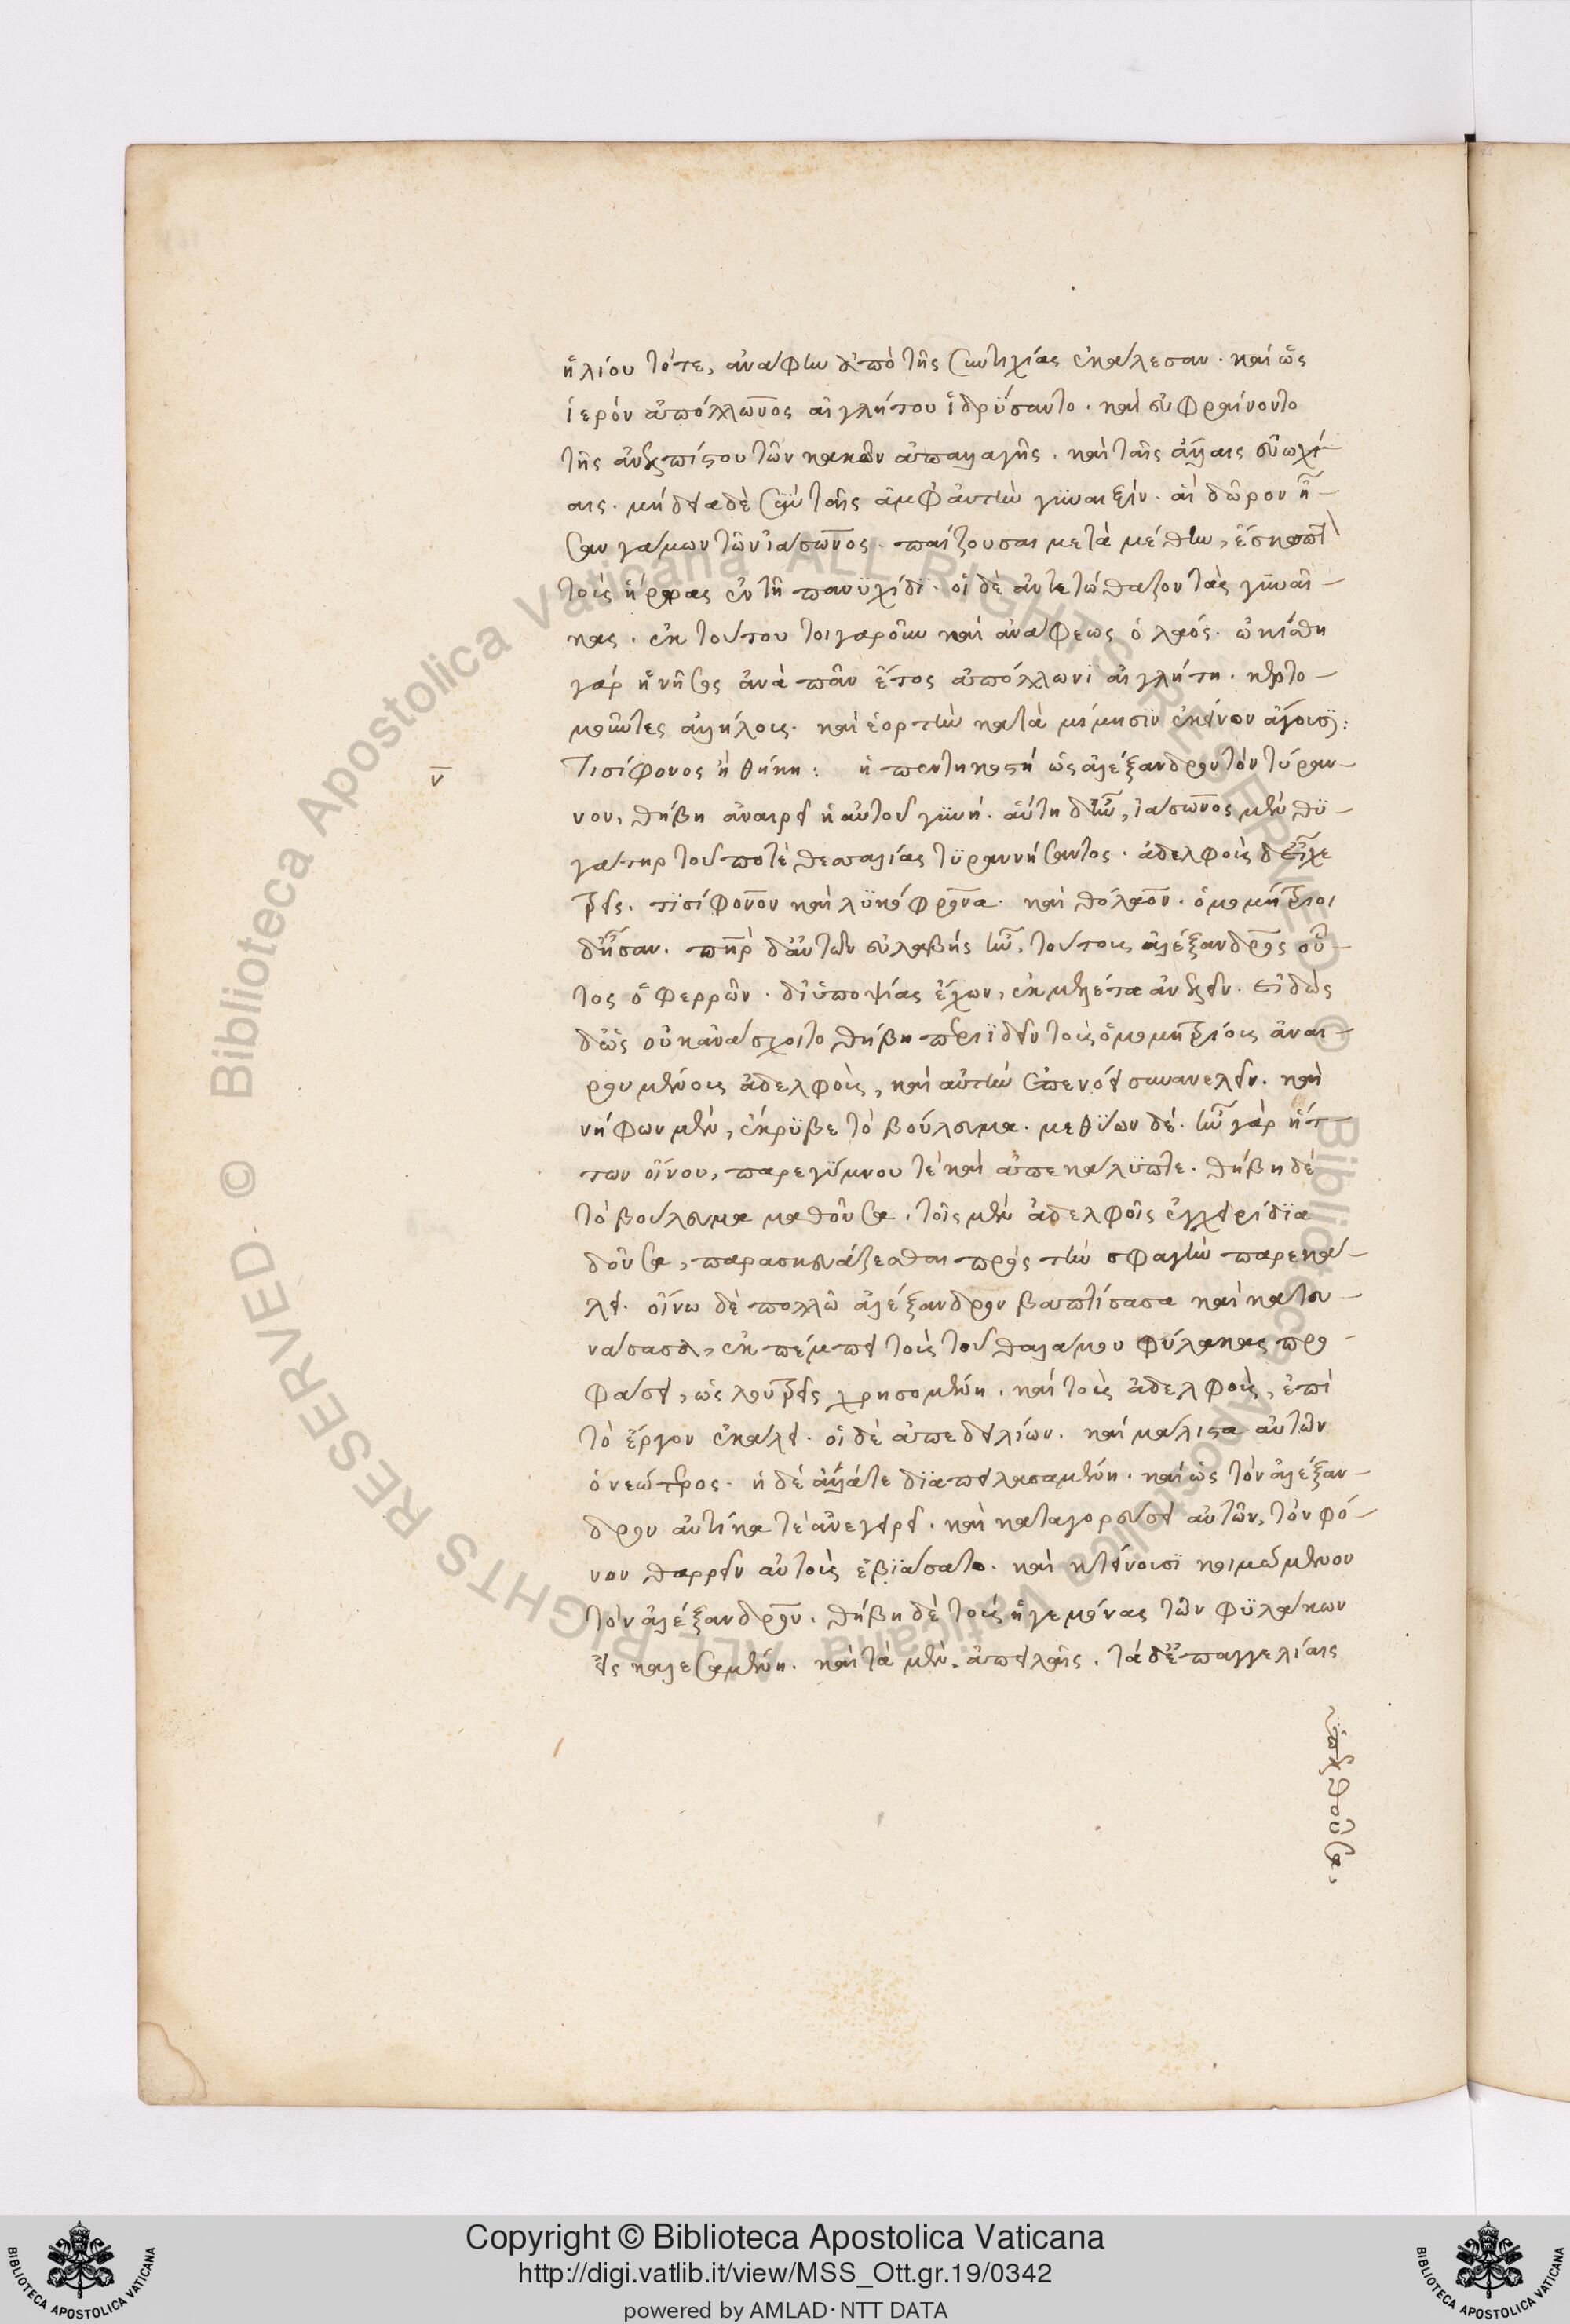 ἡλίου τότε, ἀνάφην ἀπὸ τῆς συντυχίας ἐκάλεσαν. καὶ ὡς
ἱερὸν ἀπόλλωνος αἰγλήτου ἱδρύσαντο. καὶ εὐφραίνοντο
τῆς ἀνελπίστου τῶν κακῶν ἀπαλλαγῆς. καὶ ταῖς ἄλλαις εὐωχί-
αις. μήδεια δὲ σὺν ταῖς ἀμφ' αὐτὴν γυναιξίν. αἳ δῶρον ἦ-
σαν γάμων τῶν ἰάσωνος. παίζουσαι μετὰ μέθην, ἔσκωπτ
τοὺς ἥρωας ἐν τῇ παννυχίδι. οἱ δὲ ἀντετώθαζον τὰς γυναῖ-
κας. ἐκ τούτου τοιγαροῦν καὶ ἀνάφεως ὁ λαός. ᾠκίσθη
γὰρ ἡ νῆσος ἀνὰ πᾶν ἔτος ἀπόλλωνι αἰγλήτῃ. κερτο-
μοῦντες ἀλλήλοις. καὶ ἑορτὴν κατὰ μίμησιν ἐκείνων ἄγουσι:
ν Τισίφονος ἢ θήκη: ἡ πεντηκοστὴ ὡς ἀλέξανδρον τὸν τύραν-
νον, θήβη ἀναιρεῖ ἡ αὐτοῦ γυνή. αὕτη δ' ἦν, ἰάσωνος μὲν θυ-
γάτηρ τοῦ ποτὲ θεσσαλίας τυραννήσαντος. ἀδελφοὺς δ' εἶχε
τρεῖς. τισίφονον καὶ λυκόφρονα. καὶ πόλαον. ὁμομήτριοι
δ' ἦσαν. πατὴρ δ' αὐτῶν εὐλαβὴς ἦν, τούτοις ἀλέξανδρος οὗ-
τος ὁ φερρῶν. δι' ὑποψίας ἔχων, ἐμελέτα ἀνελεῖν. εἰδὼς
δ' ὡς οὐκ ἀνάσχοιτο θήβη περιιδεῖν τοὺς ὁμομητρίους ἀναι-
ρουμένους ἀδελφοὺς, καὶ αὐτὴν ἐπενόει συνανελεῖν. καὶ
νήφων μὲν, ἔκρυβε τὸ βούλευμα. μεθύων δέ. ἦν γὰρ ἥτ-
των οἴνου, παρεγύμνου τε καὶ ἀπεκάλυπτε. θήβη δὲ
τὸ βούλευμα μαθοῦσα. τοῖς μὲν ἀδελφοῖς ἐγχειρίδια
δοῦσα, παρασκευάζεσθαι πρὸς τὴν σφαγὴν παρεκά-
λει. οἴνῳ δὲ πολλῷ ἀλέξανδρον βαπτίσασα καὶ κατευ-
νάσασα, ἐκπέμπει τοὺς τοῦ θαλάμου φύλακας προ-
φάσει, ὡς λουτροῖς χρησομένη. καὶ τοὺς ἀδελφοὺς, ἐπὶ
τὸ ἔργον ἐκάλει. οἱ δὲ ἀπεδειλίων. καὶ μάλιστα αὐτῶν
ὁ νεώτερος. ἡ δὲ ἄλλα τε διαπειλησαμένη. καὶ ὡς τὸν ἀλέξαν-
δρον αὐτίκα τε ἀνεγείρει. καὶ καταγορεύσει αὐτῶν, τὸν φό-
νον θαρρεῖν αὐτοὺς ἐβιάσατο. καὶ κτείνουσι κοιμώμενον
τὸν ἀλέξανδρον. θήβη δὲ τοὺς ἡγεμόνας τῶν φυλάκων
εἰσκαλεσαμένη. καὶ τὰ μὲν. ἀπειλαῖς. τὰ δ' ἐπαγγελίαις
ὑπελθοῦσα,
Copyright © Biblioteca Apostolica Vaticana
http://digi.vatlib.it/view/MSS_Ott.gr.19/0342
powered by AMLAD·NTT DATA